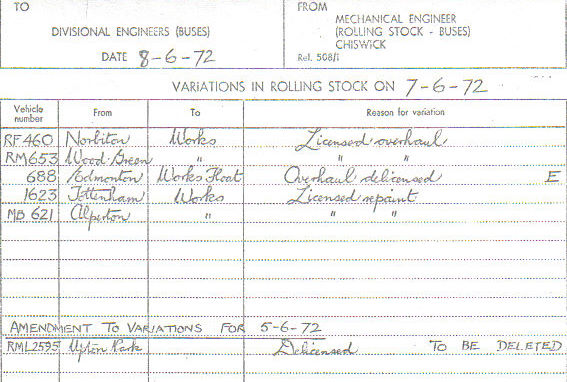 TO
DIVISIONAL ENGINEERS (BUSES)
DATE 8-6-72
FROM
MECHANICAL ENGINEER
(ROLLING STOCK - BUSES)
CHISWICK
Rel. 508/1
VARIATIONS IN ROLLING STOCK ON 7-6-72
Vehicle number From To Reason for variation
RF 460 Norbiton Works Licensed overhaul
RM 653 Wood Green " " "
688 Edmonton Works Float Overhaul delicensed E
1623 Tottenham Works Licensed repaint
MB 621 Alperton " " "
AMENDMENT TO VARIATIONS FOR 5-6-72
RML2595 Upton Park Delicensed TO BE DELETED